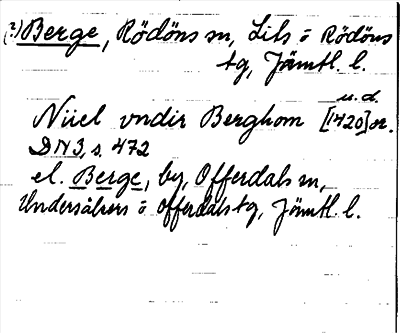 (?) Berge, Rödöns sn, Lits o Rödöns
tg, Jämtl. l.
u.d.
Niiel vndir Berghom [1420] or.
DN3, s. 472
el. Berge, by, Offerdals sn,
Undersåkers o Offerdals tg, Jämtl. l.